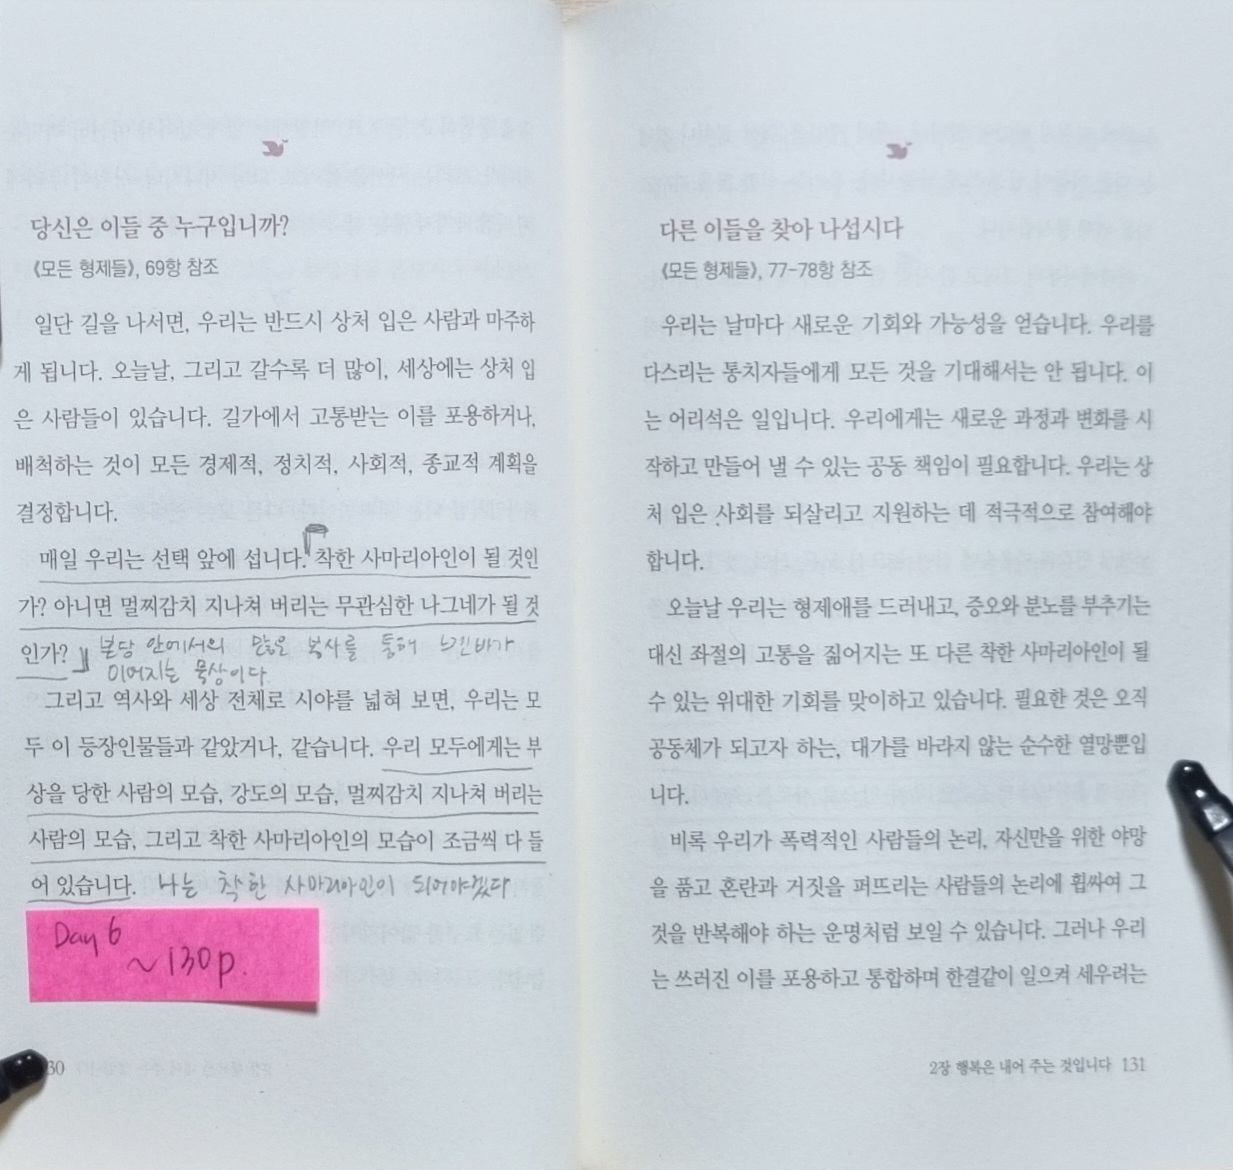 당신은 이들 중 누구입니까?
《모든 형제들》, 69항 참조
일단 길을 나서면, 우리는 반드시 상처 입은 사람과 마주하
게 됩니다. 오늘날, 그리고 갈수록 더 많이, 세상에는 상처 입
은 사람들이 있습니다. 길가에서 고통받는 이를 포용하거나,
배척하는 것이 모든 경제적, 정치적, 사회적, 종교적 계획을
결정합니다.
매일 우리는 선택 앞에 섭니다. 착한 사마리아인이 될 것인
가? 아니면 멀찌감치 지나쳐 버리는 무관심한 나그네가 될 것
인가? 본당 안에서의 많은 봉사를 통해 느낀바가
이어지는 묵상이다.
그리고 역사와 세상 전체로 시야를 넓혀 보면, 우리는 모
두 이 등장인물들과 같았거나, 같습니다. 우리 모두에게는 부
상을 당한 사람의 모습, 강도의 모습, 멀찌감치 지나쳐 버리는
사람의 모습, 그리고 착한 사마리아인의 모습이 조금씩 다 들
어 있습니다. 나는 착한 사마리아인이 되어야겠다
Day 6
~130p.
30
다른 이들을 찾아 나섭시다
《모든 형제들》, 77-78항 참조
우리는 날마다 새로운 기회와 가능성을 얻습니다. 우리를
다스리는 통치자들에게 모든 것을 기대해서는 안 됩니다. 이
는 어리석은 일입니다. 우리에게는 새로운 과정과 변화를 시
작하고 만들어 낼 수 있는 공동 책임이 필요합니다. 우리는 상
처 입은 사회를 되살리고 지원하는 데 적극적으로 참여해야
합니다.
오늘날 우리는 형제애를 드러내고, 증오와 분노를 부추기는
대신 좌절의 고통을 짊어지는 또 다른 착한 사마리아인이 될
수 있는 위대한 기회를 맞이하고 있습니다. 필요한 것은 오직
공동체가 되고자 하는, 대가를 바라지 않는 순수한 열망뿐입
니다.
비록 우리가 폭력적인 사람들의 논리, 자신만을 위한 야망
을 품고 혼란과 거짓을 퍼뜨리는 사람들의 논리에 휩싸여 그
것을 반복해야 하는 운명처럼 보일 수 있습니다. 그러나 우리
는 쓰러진 이를 포용하고 통합하며 한결같이 일으켜 세우려는
2장 행복은 내어 주는 것입니다 131